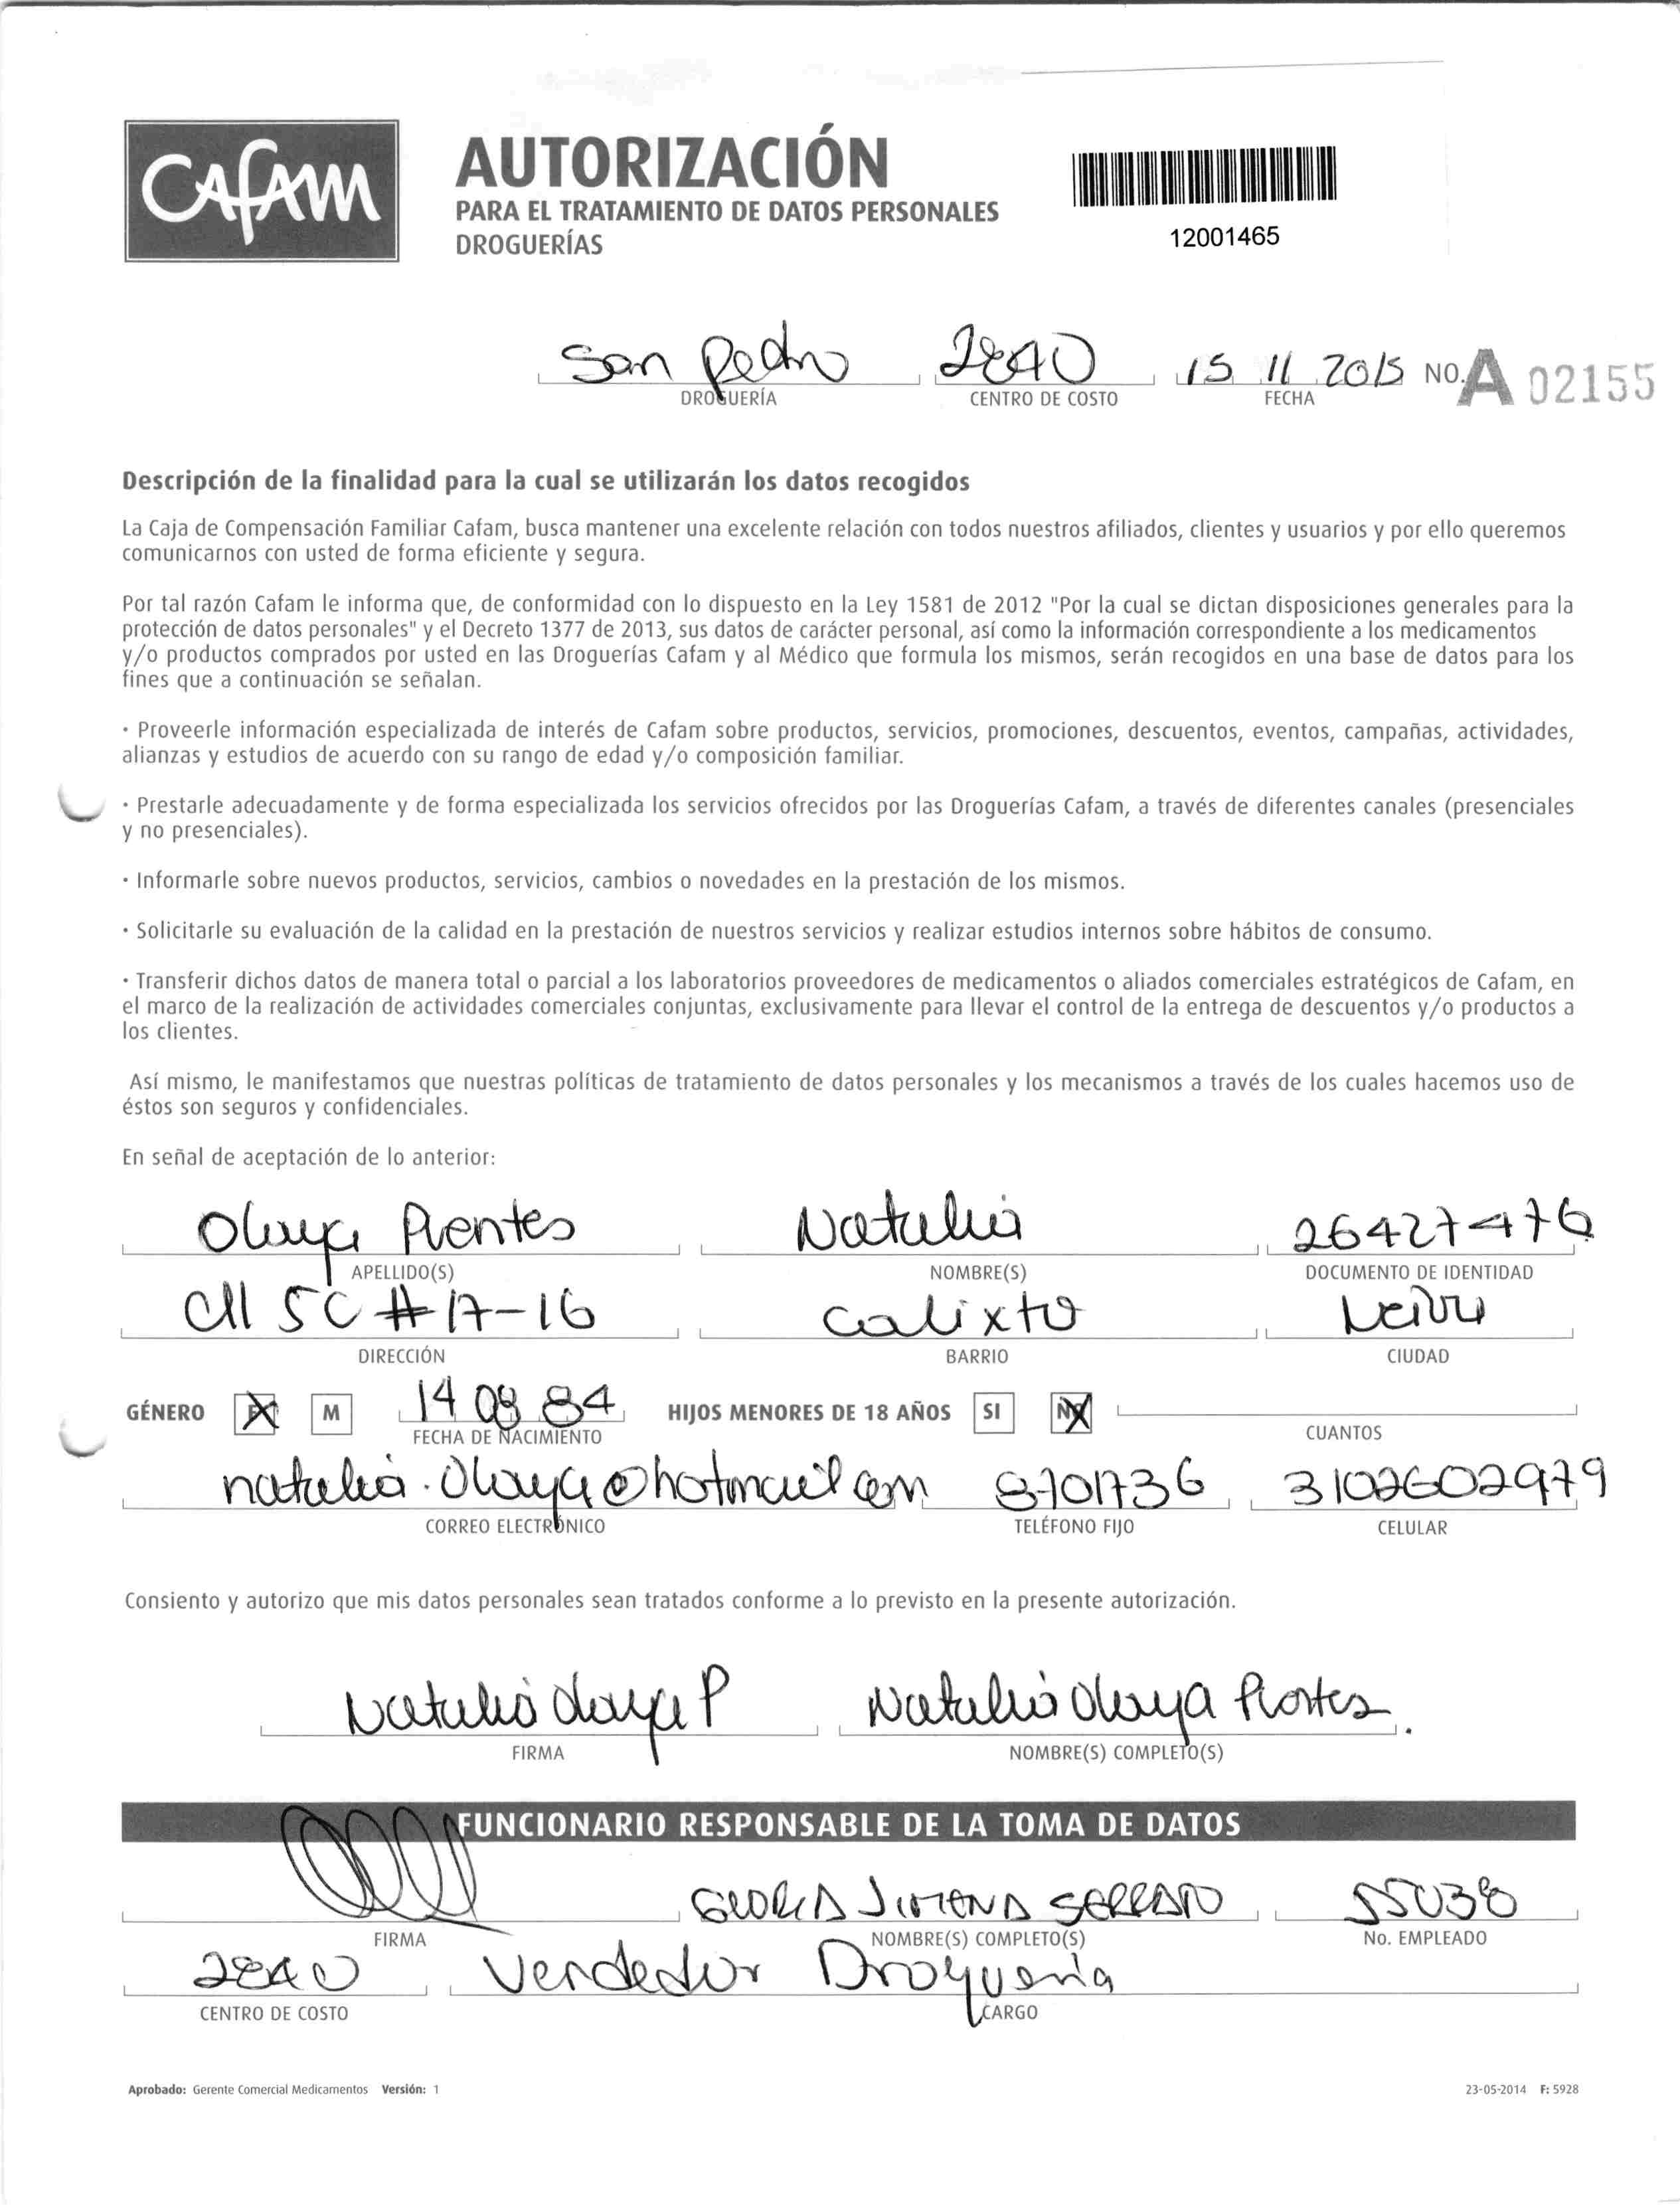 CAFAM
AUTORIZACIÓN
PARA EL TRATAMIENTO DE DATOS PERSONALES
DROGUERÍAS
12001465
San Pedro 2840 15 11 2015 NO. A 02155
DROGUERÍA CENTRO DE COSTO FECHA
Descripción de la finalidad para la cual se utilizarán los datos recogidos
La Caja de Compensación Familiar Cafam, busca mantener una excelente relación con todos nuestros afiliados, clientes y usuarios y por ello queremos
comunicarnos con usted de forma eficiente y segura.
Por tal razón Cafam le informa que, de conformidad con lo dispuesto en la Ley 1581 de 2012 "Por la cual se dictan disposiciones generales para la
protección de datos personales" y el Decreto 1377 de 2013, sus datos de carácter personal, así como la información correspondiente a los medicamentos
y/o productos comprados por usted en las Droguerías Cafam y al Médico que formula los mismos, serán recogidos en una base de datos para los
fines que a continuación se señalan.
· Proveerle información especializada de interés de Cafam sobre productos, servicios, promociones, descuentos, eventos, campañas, actividades,
alianzas y estudios de acuerdo con su rango de edad y/o composición familiar.
· Prestarle adecuadamente y de forma especializada los servicios ofrecidos por las Droguerías Cafam, a través de diferentes canales (presenciales
y no presenciales).
· Informarle sobre nuevos productos, servicios, cambios o novedades en la prestación de los mismos.
· Solicitarle su evaluación de la calidad en la prestación de nuestros servicios y realizar estudios internos sobre hábitos de consumo.
· Transferir dichos datos de manera total o parcial a los laboratorios proveedores de medicamentos o aliados comerciales estratégicos de Cafam, en
el marco de la realización de actividades comerciales conjuntas, exclusivamente para llevar el control de la entrega de descuentos y/o productos a
los clientes.
Así mismo, le manifestamos que nuestras políticas de tratamiento de datos personales y los mecanismos a través de los cuales hacemos uso de
éstos son seguros y confidenciales.
En señal de aceptación de lo anterior:
Olaya Puentes Natalia 26427476
APELLIDO(S) NOMBRE(S) DOCUMENTO DE IDENTIDAD
Cll 5C # 17-16 Calixto Neiva
DIRECCIÓN BARRIO CIUDAD
GÉNERO F M 14 08 84 HIJOS MENORES DE 18 AÑOS SI NO
FECHA DE NACIMIENTO CUANTOS
natalia.olaya@hotmail.com 8701736 3102602979
CORREO ELECTRÓNICO TELÉFONO FIJO CELULAR
Consiento y autorizo que mis datos personales sean tratados conforme a lo previsto en la presente autorización.
Natalia Olaya P Natalia Olaya Puentes.
FIRMA NOMBRE(S) COMPLETO(S)
FUNCIONARIO RESPONSABLE DE LA TOMA DE DATOS
GLORIA JIMENA SERRATO 55038
FIRMA NOMBRE(S) COMPLETO(S) No. EMPLEADO
2840 Vendedor Droguería
CENTRO DE COSTO CARGO
Aprobado: Gerente Comercial Medicamentos Versión: 1 23-05-2014 F: 5928